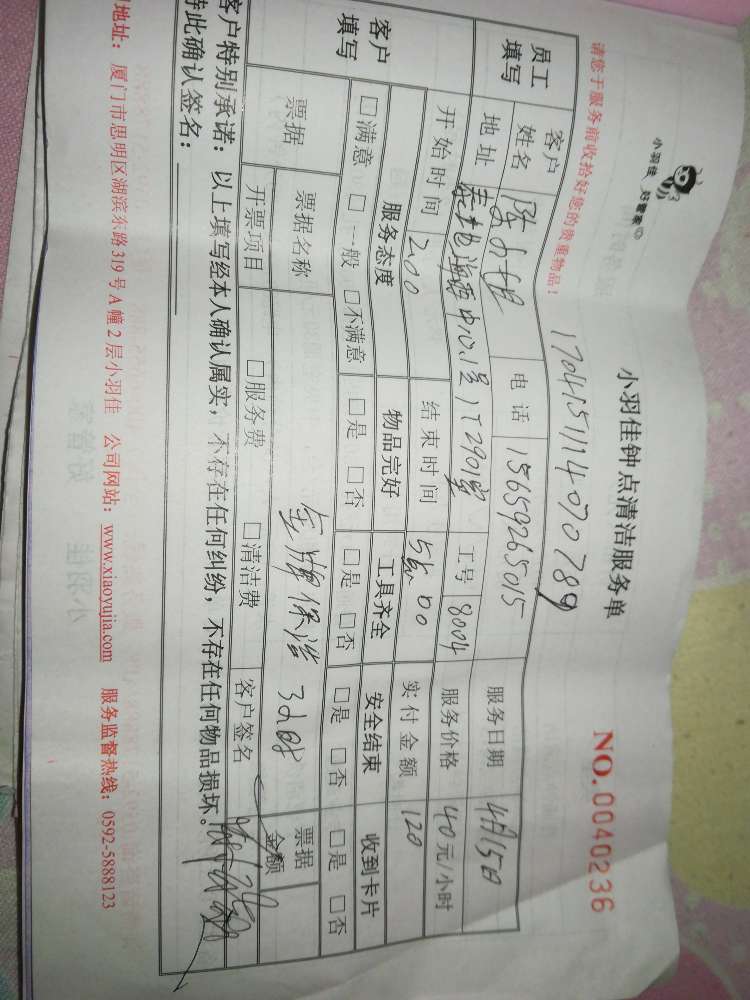 小羽佳 好管家
小羽佳钟点清洁服务单
NO.0040236
请您于服务前收拾好您的贵重物品！
1704151114070789
员工填写
客户姓名 电话 15659265015 服务日期 4月15日
地址 泰地海西中心1号1T2901室 工号 8004 服务价格 40元/小时
开始时间 2:00 结束时间 5:00 实付金额 120
客户填写
服务态度 物品完好 工具齐全 安全结束 收到卡片
□满意 □一般 □不满意 □是 □否 □是 □否 □是 □否 □是 □否
票据 票据名称 金牌保洁 3小时 票据金额
开票项目 □服务费 □清洁费 客户签名
客户特别承诺：以上填写经本人确认属实，不存在任何纠纷，不存在任何物品损坏。
特此确认签名：
地址：厦门市思明区湖滨东路319号A幢2层小羽佳 公司网站：www.xiaoyujia.com 服务监督热线：0592-5888123